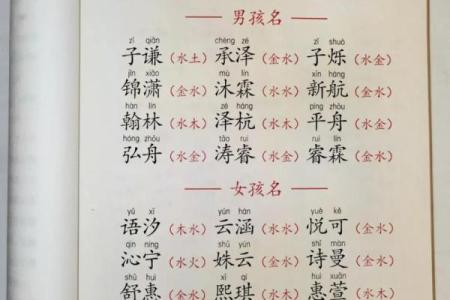 男孩名
zǐ qiān chéng zé zǐ shuò
子谦（水土） 承泽（金水） 子烁（水金）
jǐn xiāo mù lín xīn háng
锦潇（金水） 沐霖（水水） 新航（金水）
hàn lín zé háng píng zhōu
翰林（水木） 泽杭（水木） 平舟（水金）
hóng zhōu tāo ruì ruì lín
弘舟（水金） 涛睿（水金） 睿霖（金水）
女孩名
yǔ xī yún hán yuè kě
语汐（木水） 云涵（水水） 悦可（金水）
qìn níng shū yún shī màn
沁宁（水火） 姝云（金水） 诗曼（金水）
shū huì xī qí huì xuān
舒惠（金水） 熙琪（水木） 惠萱（水木）